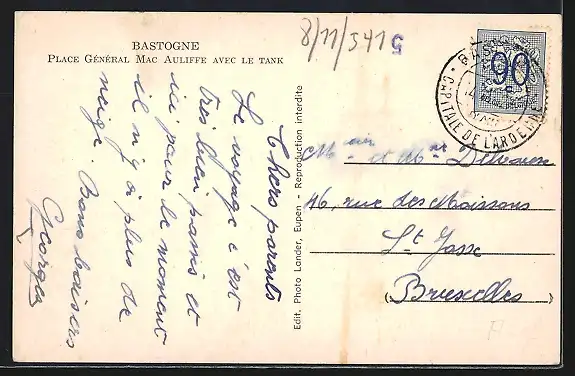 BASTOGNE
PLACE GÉNÉRAL MAC AULIFFE AVEC LE TANK
8/11/341
5
90
BAS
CAPITALE DE L'ARDENN
Chers parents
Le voyage c'est
très bien passé et
ici pour le moment
il n'y a plus de
neige. Bons baisers
Georges
Edit. Photo Lander, Eupen - Reproduction interdite
et
46, rue des Maisons
St Josse
(Bruxelles)